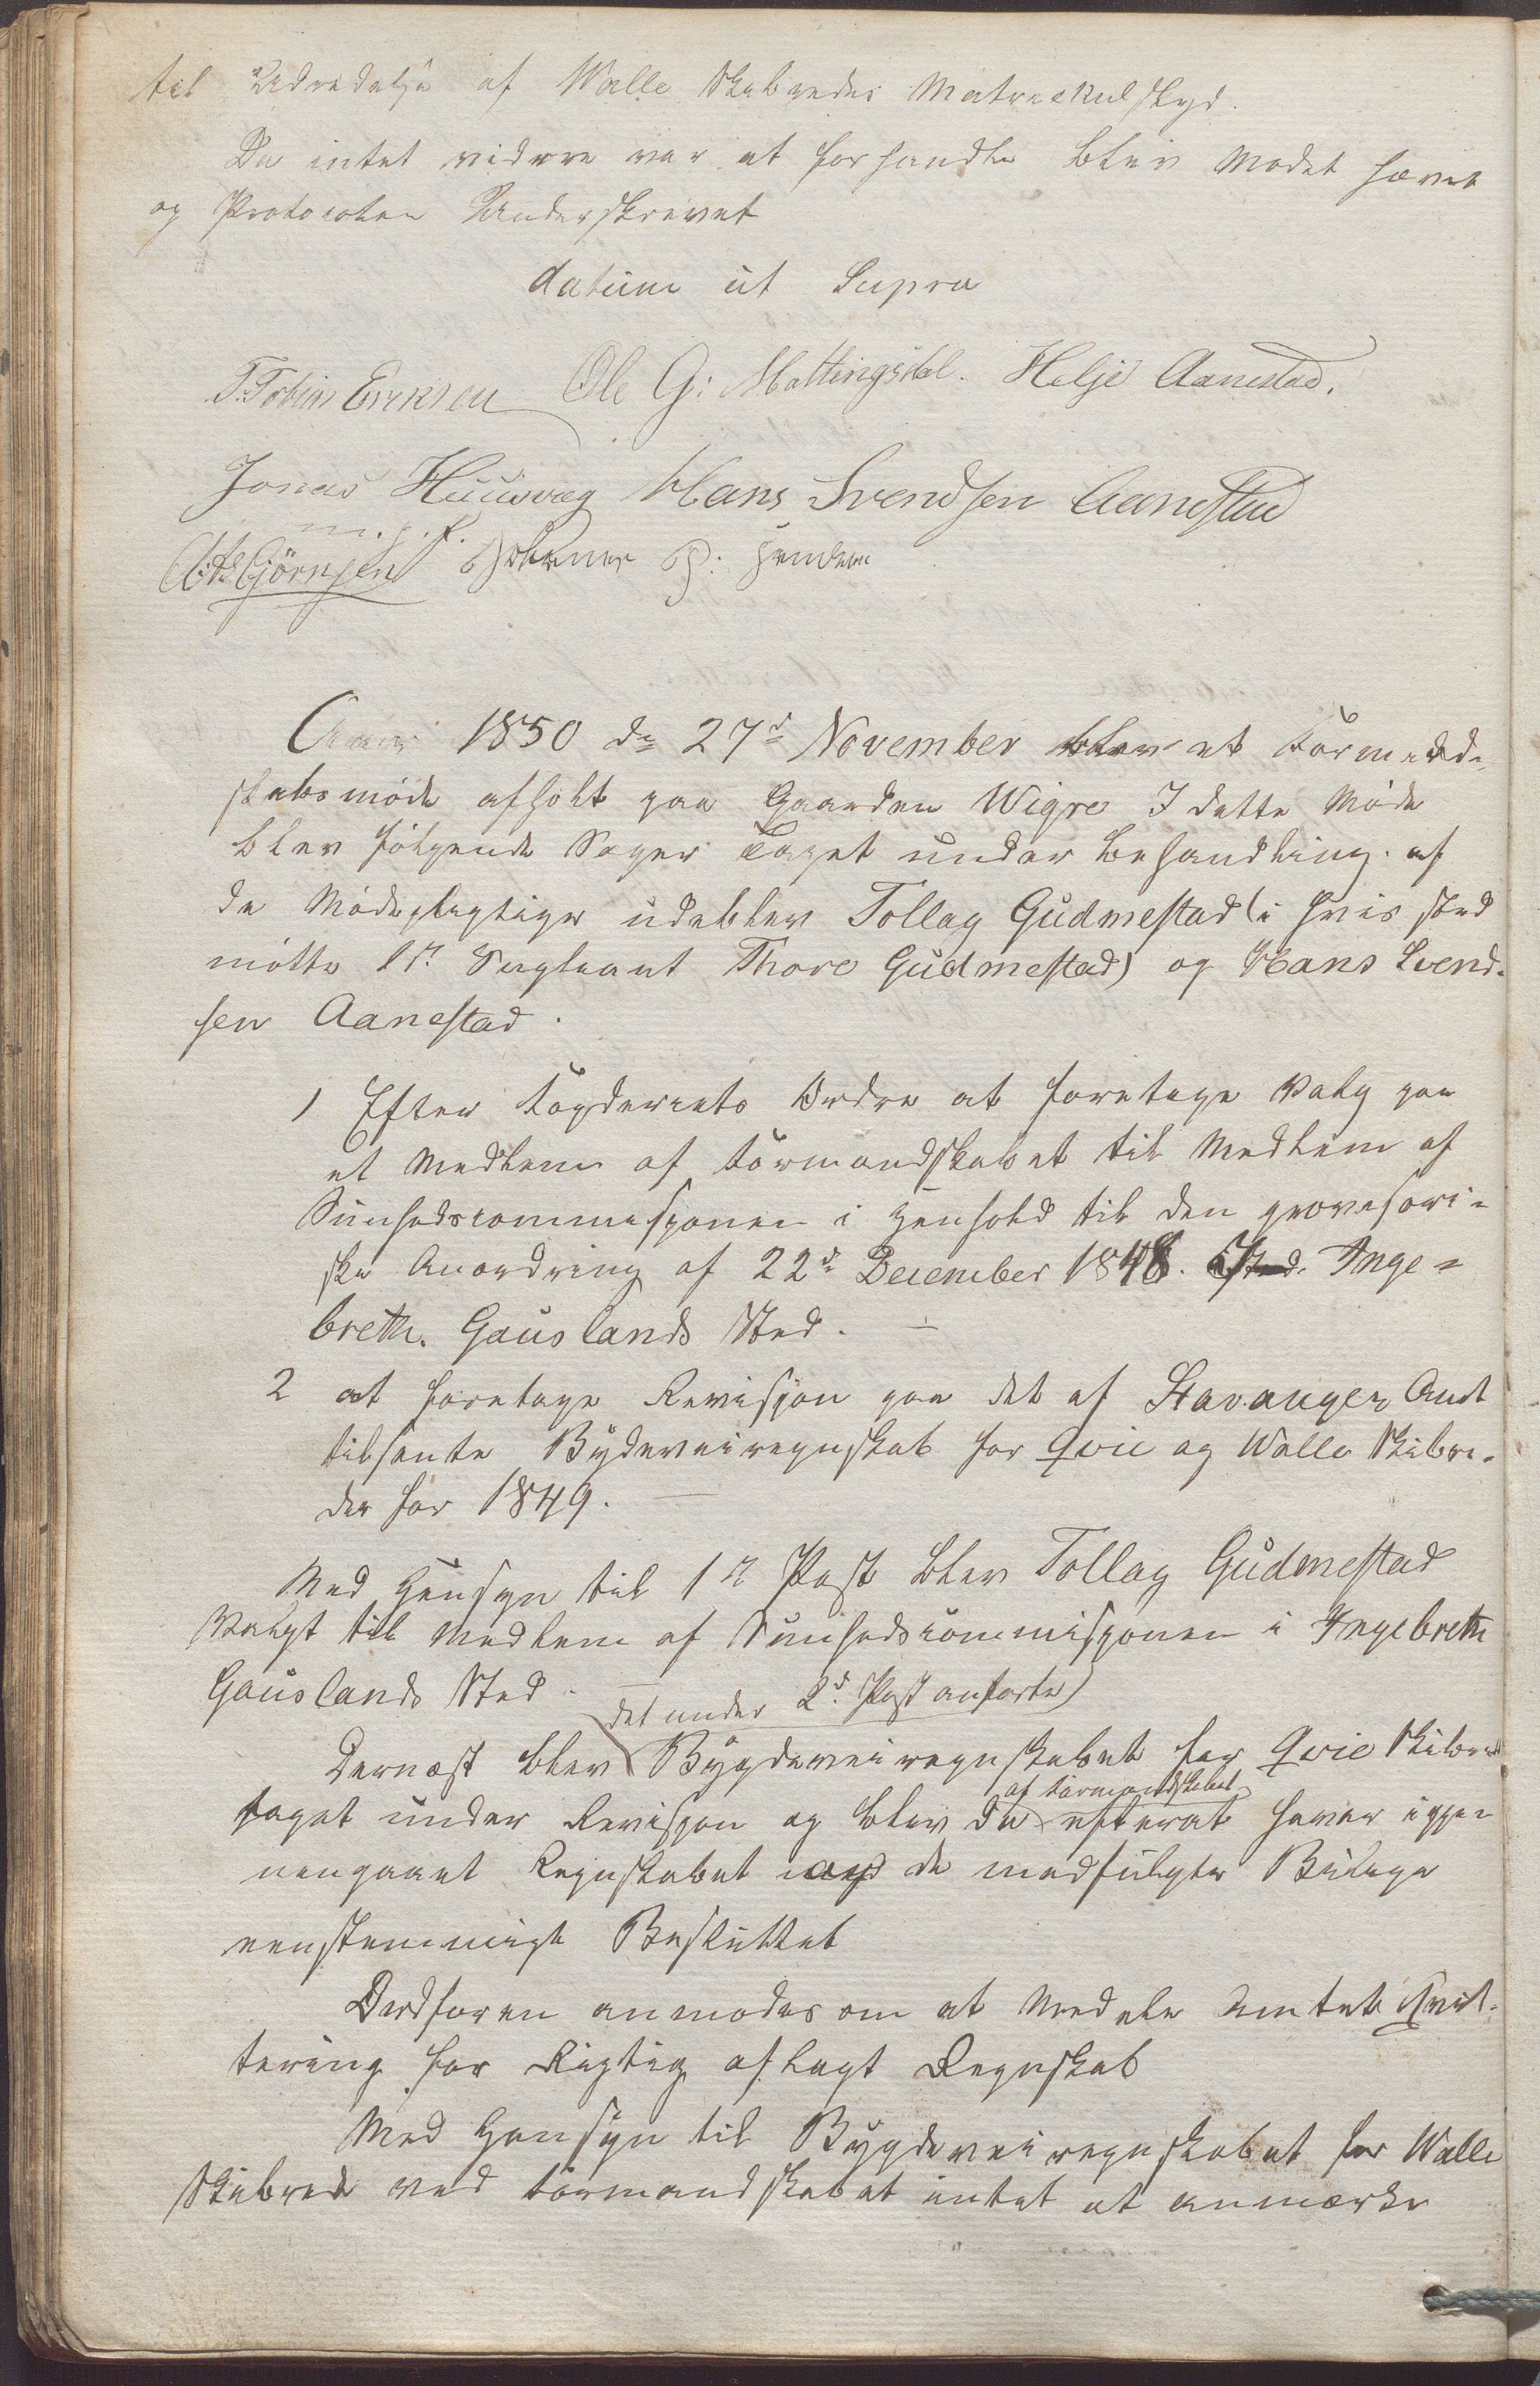 til Udredelse af Walle Skibredes Matriculskyld.
Da intet videre var at forhandle blev Mødet hævet
og Protocolen Underskrevet
datum ut Supra
T. Tobias Eriksen Ole G: Mattingsdal. Helje Aanestad.
Jonas Huusvæg Hans Svendsen Aanestad
m. p. f.
A: A: Gjörnsen
Aar 1850 dn 27d November blev et Formand-
skabsmöde afholt paa Gaarden Wigre I dette Möde
blev fölgende Sager taget under behandling. af
de Mödepligtige udeblev Tollag Gudmestad (i hvis sted
mötte 1s: Supleant Thore Gudmestad) og Hans Svend-
sen Aanestad.
1 Efter Fogderiets Ordre at foretage Valg paa
et Medlem af Formandskabet til Medlem af
Sunhedscommisjonen i Henhold til den provisori-
ske Anordning af 22d December 1848. i Sted. Inge-
breth. Gauslands Sted. —
2 at foretage Revisjon paa det af Stavanger Amt
tilsente Bydeveiregnskab for Qvie og Walle Skibre-
der for 1849. —
Med Hensyn til 1s Post blev Tollag Gudmestad
Valgt til Medlem af Sunhedscommisjonen i Ingebreth
Gauslands Sted. —
det under 2d. Post anførte)
Dernæst blev Bygdeveiregnskabet for Qvie Skibred
af Formandskabet
taget under Revisjon og blev da efterat haver igjen-
nemgaaet Regnskabet med de medfulgte Bilage
eenstemmigt Besluttet
Ordføren anmodes om at meddele Amtet Qvit-
tering for Rigtig aflagt Regnskab
Med Hensyn til Bygdeveiregnskabet for Walle
Skibrede ved Formandskabet intet at anmærke